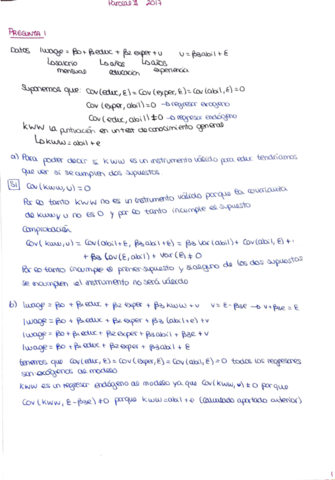 Parcial 2 2017
PREGUNTA 1
Datos lwage = β0 + β1educ + β2 exper + u u = β3abil + E
↳salario ↳años ↳años
mensual educación experiencia
Suponemos que: Cov(educ, E) = Cov(exper, E) = Cov(abil, E) = 0
Cov(exper, abil) = 0 → regresor exógeno
Cov(educ, abil) ≠ 0 → regresor endógeno
kww la puntuación en un test de conocimiento general
↳ kww = abil + e
a) Para poder decir si kww es un instrumento válido para educ tendríamos
que ver si se cumplen dos supuestos
S1 Cov(kww, u) = 0
Por lo tanto kww no es un instrumento válido porque la covarianza
de kww y u no es 0 y por lo tanto incumple el supuesto
Comprobación
Cov(kww, u) = Cov(abil + e, β3abil + E) = β3 Var(abil) + Cov(abil, E) +
+ β3 Cov(e, abil) + ≠ 0
Por lo tanto incumple el primer supuesto y si alguno de los dos supuestos
se incumplen el instrumento no será válido
b) lwage = β0 + β1educ + β2 exper + β3 kww + v v = E - β3e → v + β3e = E
lwage = β0 + β1educ + β2 exper + β3(abil + e) + v
lwage = β0 + β1educ + β2exper + β3abil + β3e + v
lwage = β0 + β1educ + β2 exper + β3abil + E
tenemos que Cov(educ, E) = Cov(exper, E) = Cov(abil, E) = 0 todos los regresores
son exógenos de modelo
kww es un regresor endógeno de modelo ya que Cov(kww, v) ≠ 0 porque
Cov(kww, E - β3e) ≠ 0 porque kww = abil + e (calculado apartado anterior)
1